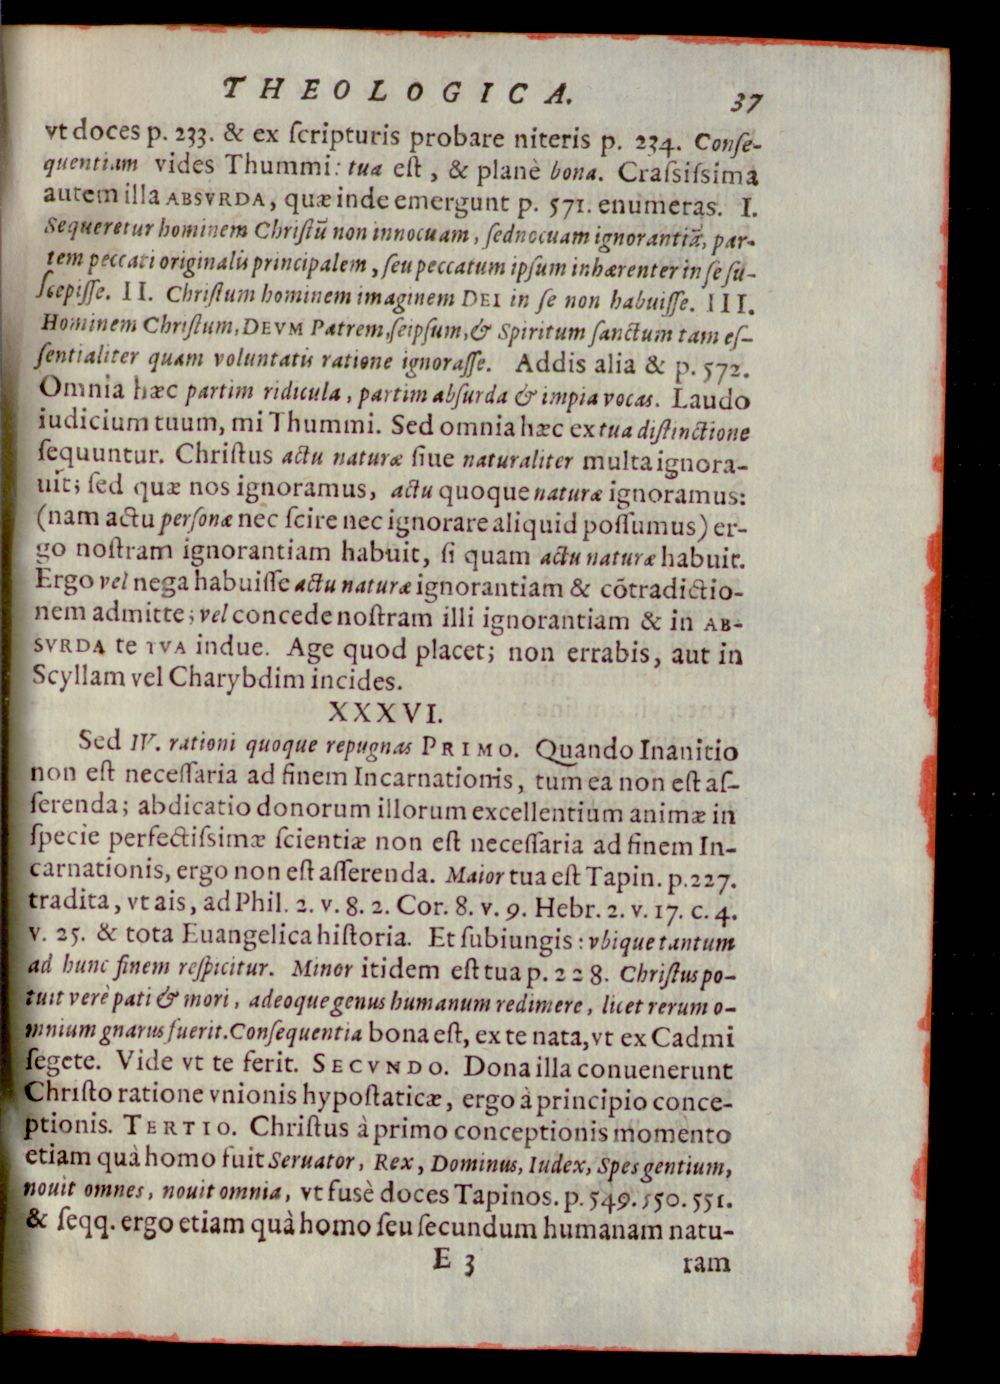 THEOLOGICA. 37
vt doces p. 233. & ex ſcripturis probare niteris p. 234. Conſe-
quentiam vides Thummi: tua eſt, & planè bona. Craſsiſsima
autem illa ABSVRDA, quæ inde emergunt p. 571. enumeras. I.
Sequeretur hominem Chriſtũ non innocuam, ſed nocuam ignorantiã, par-
tem peccati originalis principalem, ſeu peccatum ipſum inhærenter in ſe ſu-
ſcepiſſe. II. Chriſtum hominem imaginem DEI in ſe non habuiſſe. III.
Hominem Chriſtum, DEVM Patrem, ſeipſum, & Spiritum ſanctum tam eſ-
ſentialiter quam voluntatis ratione ignoraſſe. Addis alia & p. 572.
Omnia hæc partim ridicula, partim abſurda & impia vocas. Laudo
iudicium tuum, mi Thummi. Sed omnia hæc ex tua diſtinctione
ſequuntur. Chriſtus actu naturæ ſiue naturaliter multa ignora-
uit; ſed quæ nos ignoramus, actu quoque naturæ ignoramus:
(nam actu perſonæ nec ſcire nec ignorare aliquid poſſumus) er-
go noſtram ignorantiam habuit, ſi quam actu naturæ habuit.
Ergo vel nega habuiſſe actu naturæ ignorantiam & cõtradictio-
nem admitte; vel concede noſtram illi ignorantiam & in AB-
SVRDA te TVA indue. Age quod placet; non errabis, aut in
Scyllam vel Charybdim incides.
XXXVI.
Sed IV. rationi quoque repugnas PRIMO. Quando Inanitio
non eſt neceſſaria ad finem Incarnationis, tum ea non eſt aſ-
ſerenda; abdicatio donorum illorum excellentium animæ in
ſpecie perfectiſsimæ ſcientiæ non eſt neceſſaria ad finem In-
carnationis, ergo non eſt aſſerenda. Maior tua eſt Tapin. p. 227.
tradita, vt ais, ad Phil. 2. v. 8. 2. Cor. 8. v. 9. Hebr. 2. v. 17. c. 4.
v. 25. & tota Euangelica hiſtoria. Et ſubiungis: vbique tantum
ad hunc finem reſpicitur. Minor itidem eſt tua p. 228. Chriſtus po-
tuit verè pati & mori, adeoque genus humanum redimere, licet rerum o-
mnium gnarus fuerit. Conſequentia bona eſt, ex te nata, vt ex Cadmi
ſegete. Vide vt te ferit. SECVNDO. Dona illa conuenerunt
Chriſto ratione vnionis hypoſtaticæ, ergo à principio conce-
ptionis. TERTIO. Chriſtus à primo conceptionis momento
etiam quà homo fuit Seruator, Rex, Dominus, Iudex, Spes gentium,
nouit omnes, nouit omnia, vt fusè doces Tapinos. p. 549. 550. 551.
& ſeqq. ergo etiam quà homo ſeu ſecundum humanam natu-
E 3 ram